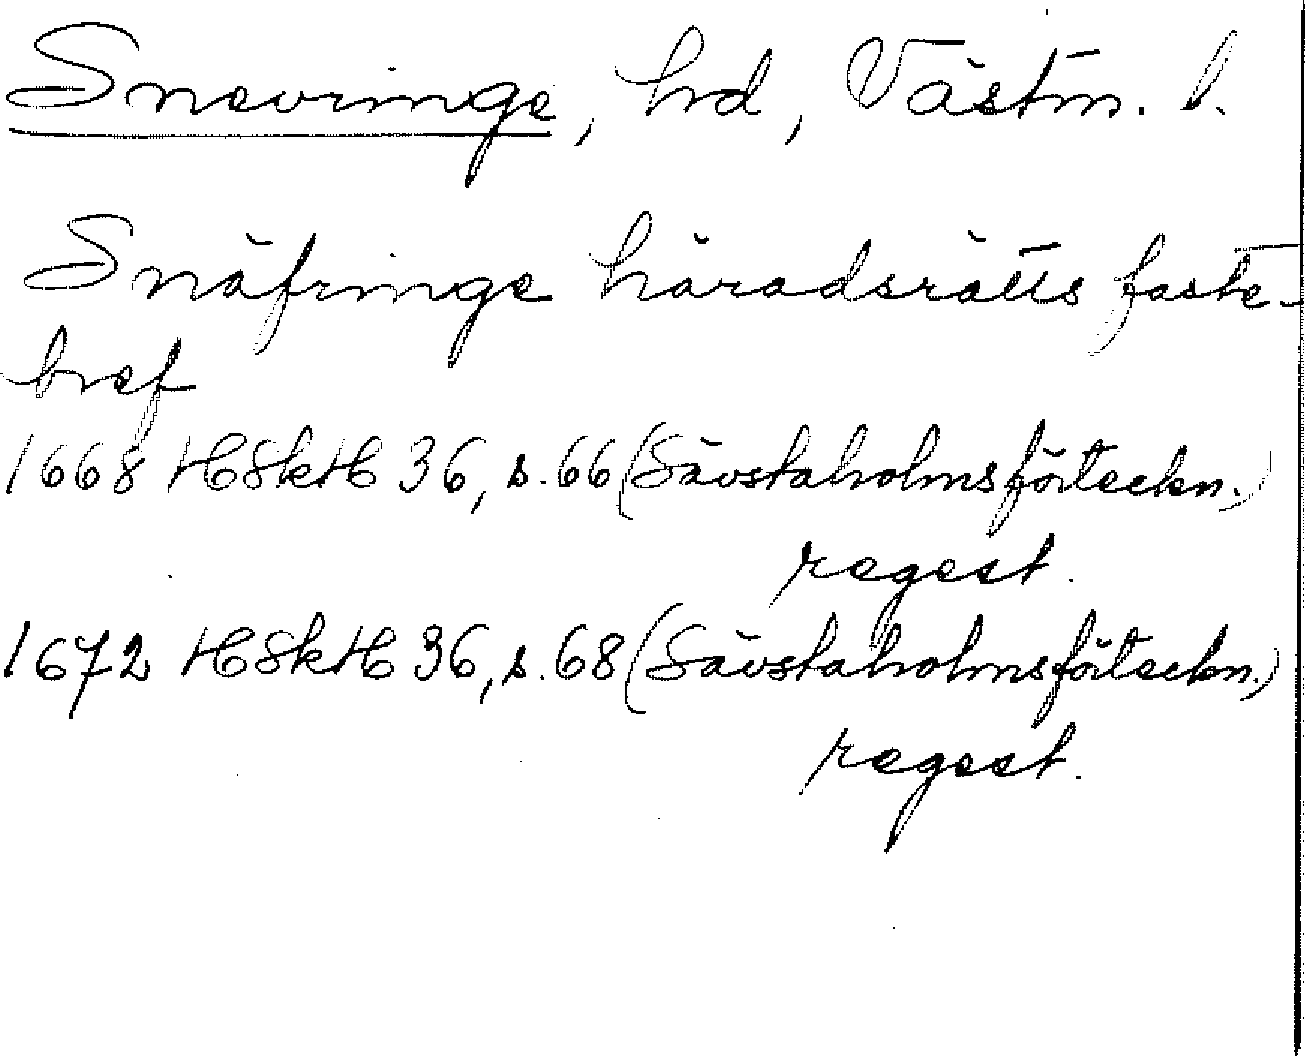 Snevringe, hd, Västm. l.
Snäfringe häradsrätts faste-
bref
1668 HSkH 36, s. 66 (Sävstaholmsförteckn.)
regest.
1672 HSkH 36, s. 68 (Sävstaholmsförteckn.)
regest.